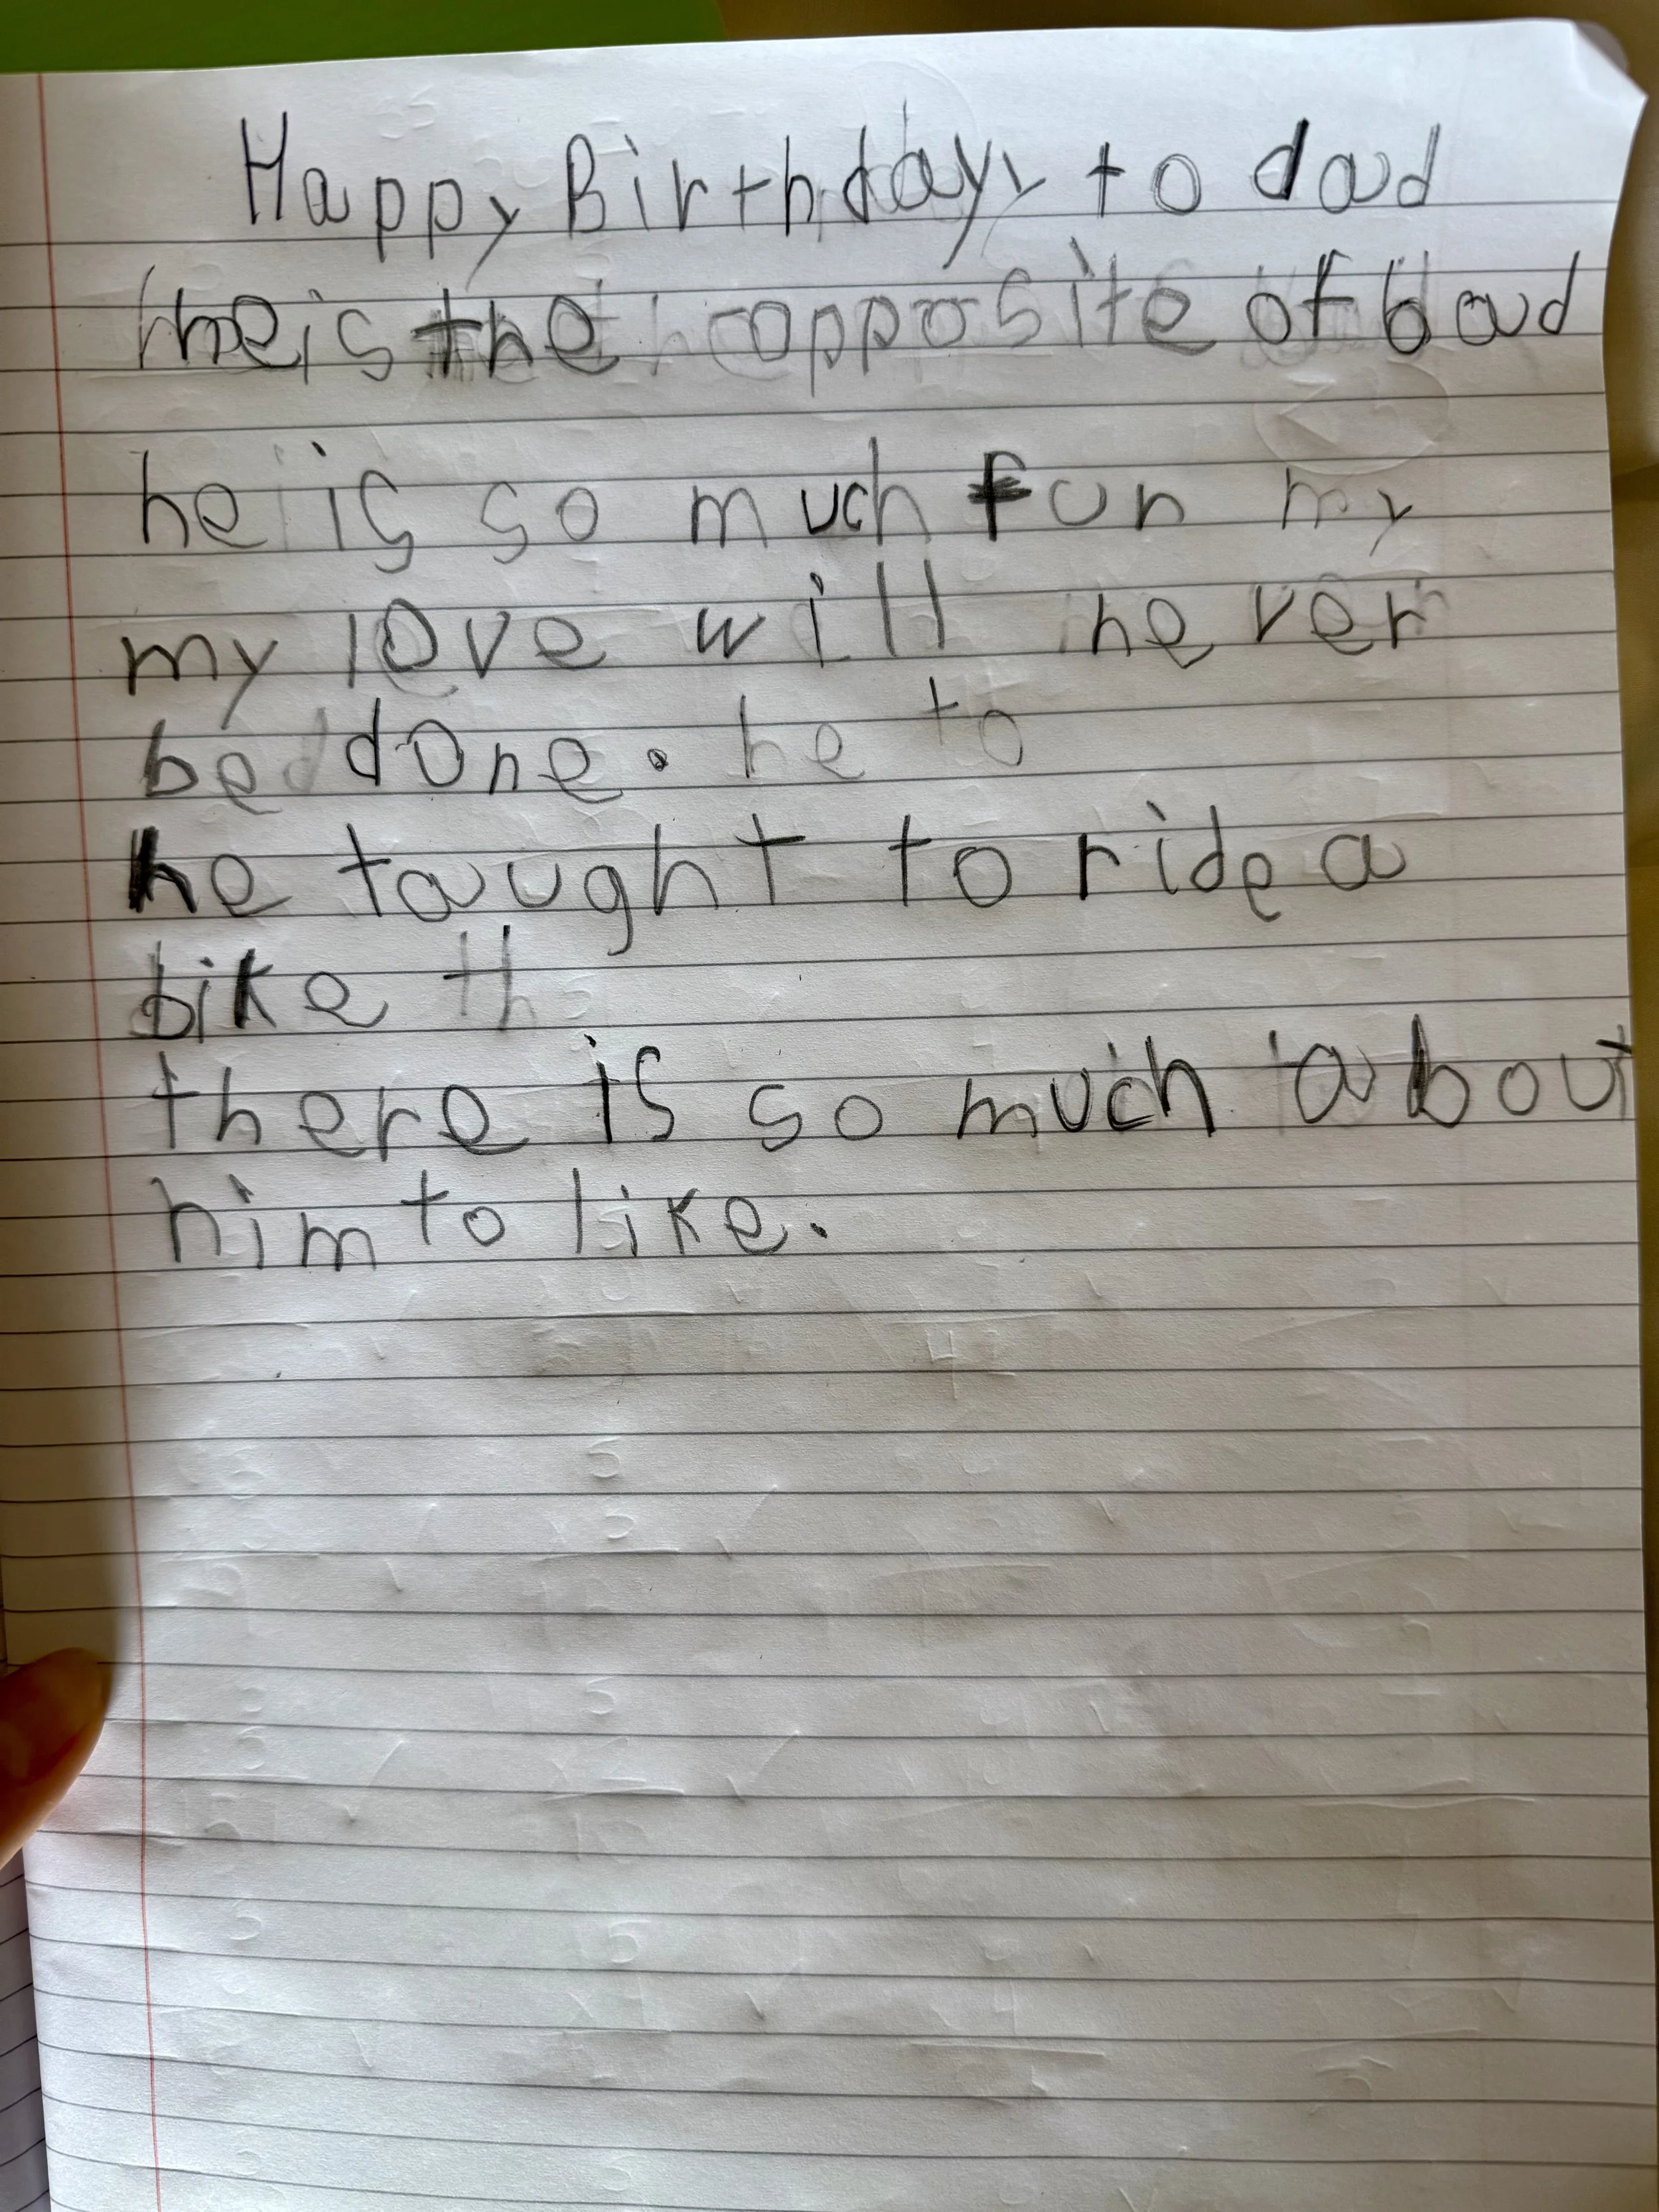 Happy Birthday to dad
he is the opposite of bad
he is so much fun my
my love will never
be done. he to
he taught to ride a
bike th
there is so much about
him to like.